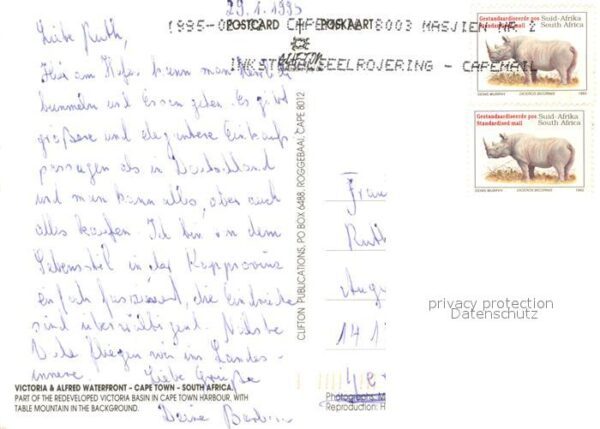 29.1.1995
POSTCARD POSKAART
1995-02 CAPEMAIL 8003 MASJIEN NR 2
INKSTRAALSEELROJERING - CAPEMAIL
Liebe Ruth,
Hier am Hafen kann man herrlich
bummeln und Essen gehen. Es gibt
größere und elegantere Einkaufs-
passagen als in Deutschland
und man kann alles, aber auch
alles kaufen. Ich bin von dem
Lebensstil in der Kapprovinz
einfach fasziniert, die Eindrücke
sind überwältigend. Nächste
Woche fliegen wir ins Landes-
innere. Liebe Grüße
Deine
VICTORIA & ALFRED WATERFRONT - CAPE TOWN - SOUTH AFRICA.
PART OF THE REDEVELOPED VICTORIA BASIN IN CAPE TOWN HARBOUR, WITH
TABLE MOUNTAIN IN THE BACKGROUND.
CLIFTON PUBLICATIONS, PO BOX 6488, ROGGEBAAI, CAPE 8012
Gestandaardiseerde pos
Standardised mail
Suid-Afrika
South Africa
DENIS MURPHY DICEROS BICORNIS 1993
Gestandaardiseerde pos
Standardised mail
Suid-Afrika
South Africa
DENIS MURPHY DICEROS BICORNIS 1993
Frau
Ruth
141
Photographs: M
Reproduction: H
privacy protection
Datenschutz